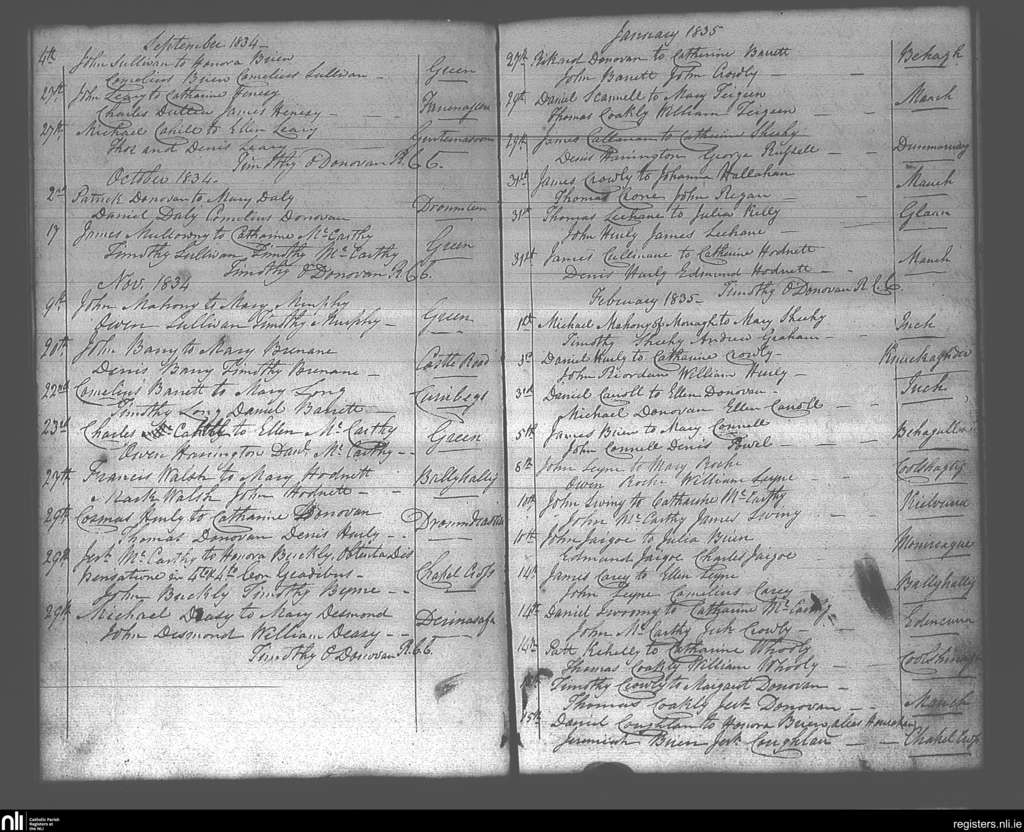 September 1834
4th John Sullivan to Honora Brien
Cornelius Brien Cornelius Sullivan — Green
27th John Leary to Catharine
Charles James
27th Michael Cahill to Ellen Leary
Thos and Denis Leary
Timothy O Donovan R.C.C.
October 1834.
2nd Patrick Donovan to Mary Daly
Daniel Daly Cornelius Donovan
17 James Mullowny to Catharine McCarthy
Timothy Sullivan Timothy McCarthy Green
Timothy O Donovan R.C.C.
Nov. 1834
9th John Mahony to Mary Murphy
Owen Sullivan Timothy Murphy — Green
20th John Barry to Mary Brenane
Denis Barry Timothy Brenane — Castle Road
22nd Cornelius Barrett to Mary Long
Timothy Long Daniel Barrett
23rd Charles to Ellen McCarthy
Owen Harrington Danl. McCarthy - - Green
27th Francis Walsh to Mary Hodnett
Mark Walsh John Hodnett - - Ballyhally
29th Cosmas Hurly to Catharine Donovan
Thomas Donovan Denis Hurly - -
29th Jerh McCarthy to Honora Buckly, Obtenta Dis
pensatione in 4to & 4to Con Gradibus — Chapel Cross
John Buckly Timothy Byrne - -
29th Michael Deasy to Mary Desmond
John Desmond William Deasy - -
Timothy O Donovan R.C.C.
January 1835
27th Richard Donovan to Catherine Barrett
John Barrett John Crowly — — Behagh
29th Daniel Scannell to Mary Teigeen
Thomas Coakly William Teigeen March
29th James Callanan to Catherine Sheehy
Denis Harrington George Russell — Dunmanway
31st James Crowly to Johanna Hallahan
Thomas Crone John Regan — Manch
31st Thomas Leehane to Julia Kelly
John Hurly James Leehane — Glaun
31st James Cullinane to Catherine Hodnett
Denis Hurly Edmund Hodnett — — Manch
Timothy O Donovan R.C.C.
February 1835
1st Michael Mahony of to Mary Sheehy
Timothy Sheehy Andrew Graham — Inch
3rd Daniel Hurly to Catharine Crowly
John Riordan William Hurly —
3rd Daniel Carroll to Ellen Donovan
Michael Donovan Ellen Carroll — Inch
5th James Brien to Mary Connell
John Connell Denis
8th John Leyne to Mary Roche
Owen Roche William Leyne — —
10th John Swiny to Catharine McCarthy
John McCarthy James Swiny —
10th John Jargoe to Julia Brien
Edmund Jargoe Charles Jargoe
14th James Carey to Ellen Leyne
John Leyne Cornelius Carey — — Ballyhally
14th Daniel to Catharine McCarthy
John McCarthy Jerh Crowly —
14th Patt Kehelly to Catharine Whooly
Thomas Coakly William Whooly —
Timothy Crowly to Margaret Donovan —
Thomas Coakly Jerh. Donovan — - Manch
15th Daniel Coughlan to Honora Brien, alias
Jeremiah Brien Jerh Coughlan — — Chapel Cross
nli Catholic Parish Registers at the NLI
registers.nli.ie